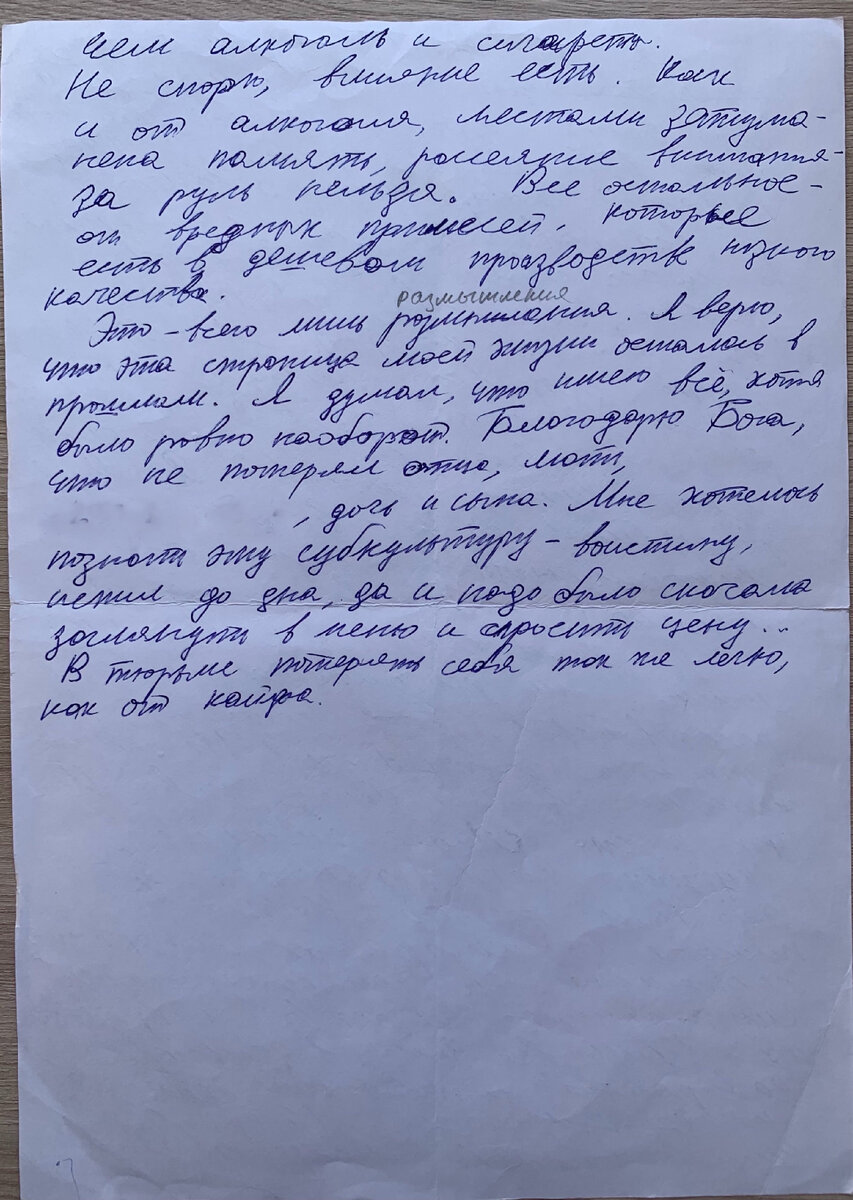 чем алкоголь и сигареты.
Не спорю, влияние есть. Как
и от алкоголя, местами затума-
нена память, рассеяние внимания-
за руль нельзя. Все остальное -
от вредных примесей, которые
есть в дешевом производстве низкого
качества.
размышления
Это - всего лишь размышления. Я верю,
что эта страница моей жизни осталась в
прошлом. Я думал, что имею всё, хотя
было ровно наоборот. Благодарю Бога,
что не потерял отца, мать,
, дочь и сына. Мне хотелось
познать эту субкультуру - воистину,
испил до дна, да и надо было сначала
заглянуть в меню и спросить цену...
В тюрьме потерять себя так же легко,
как от кайфа.